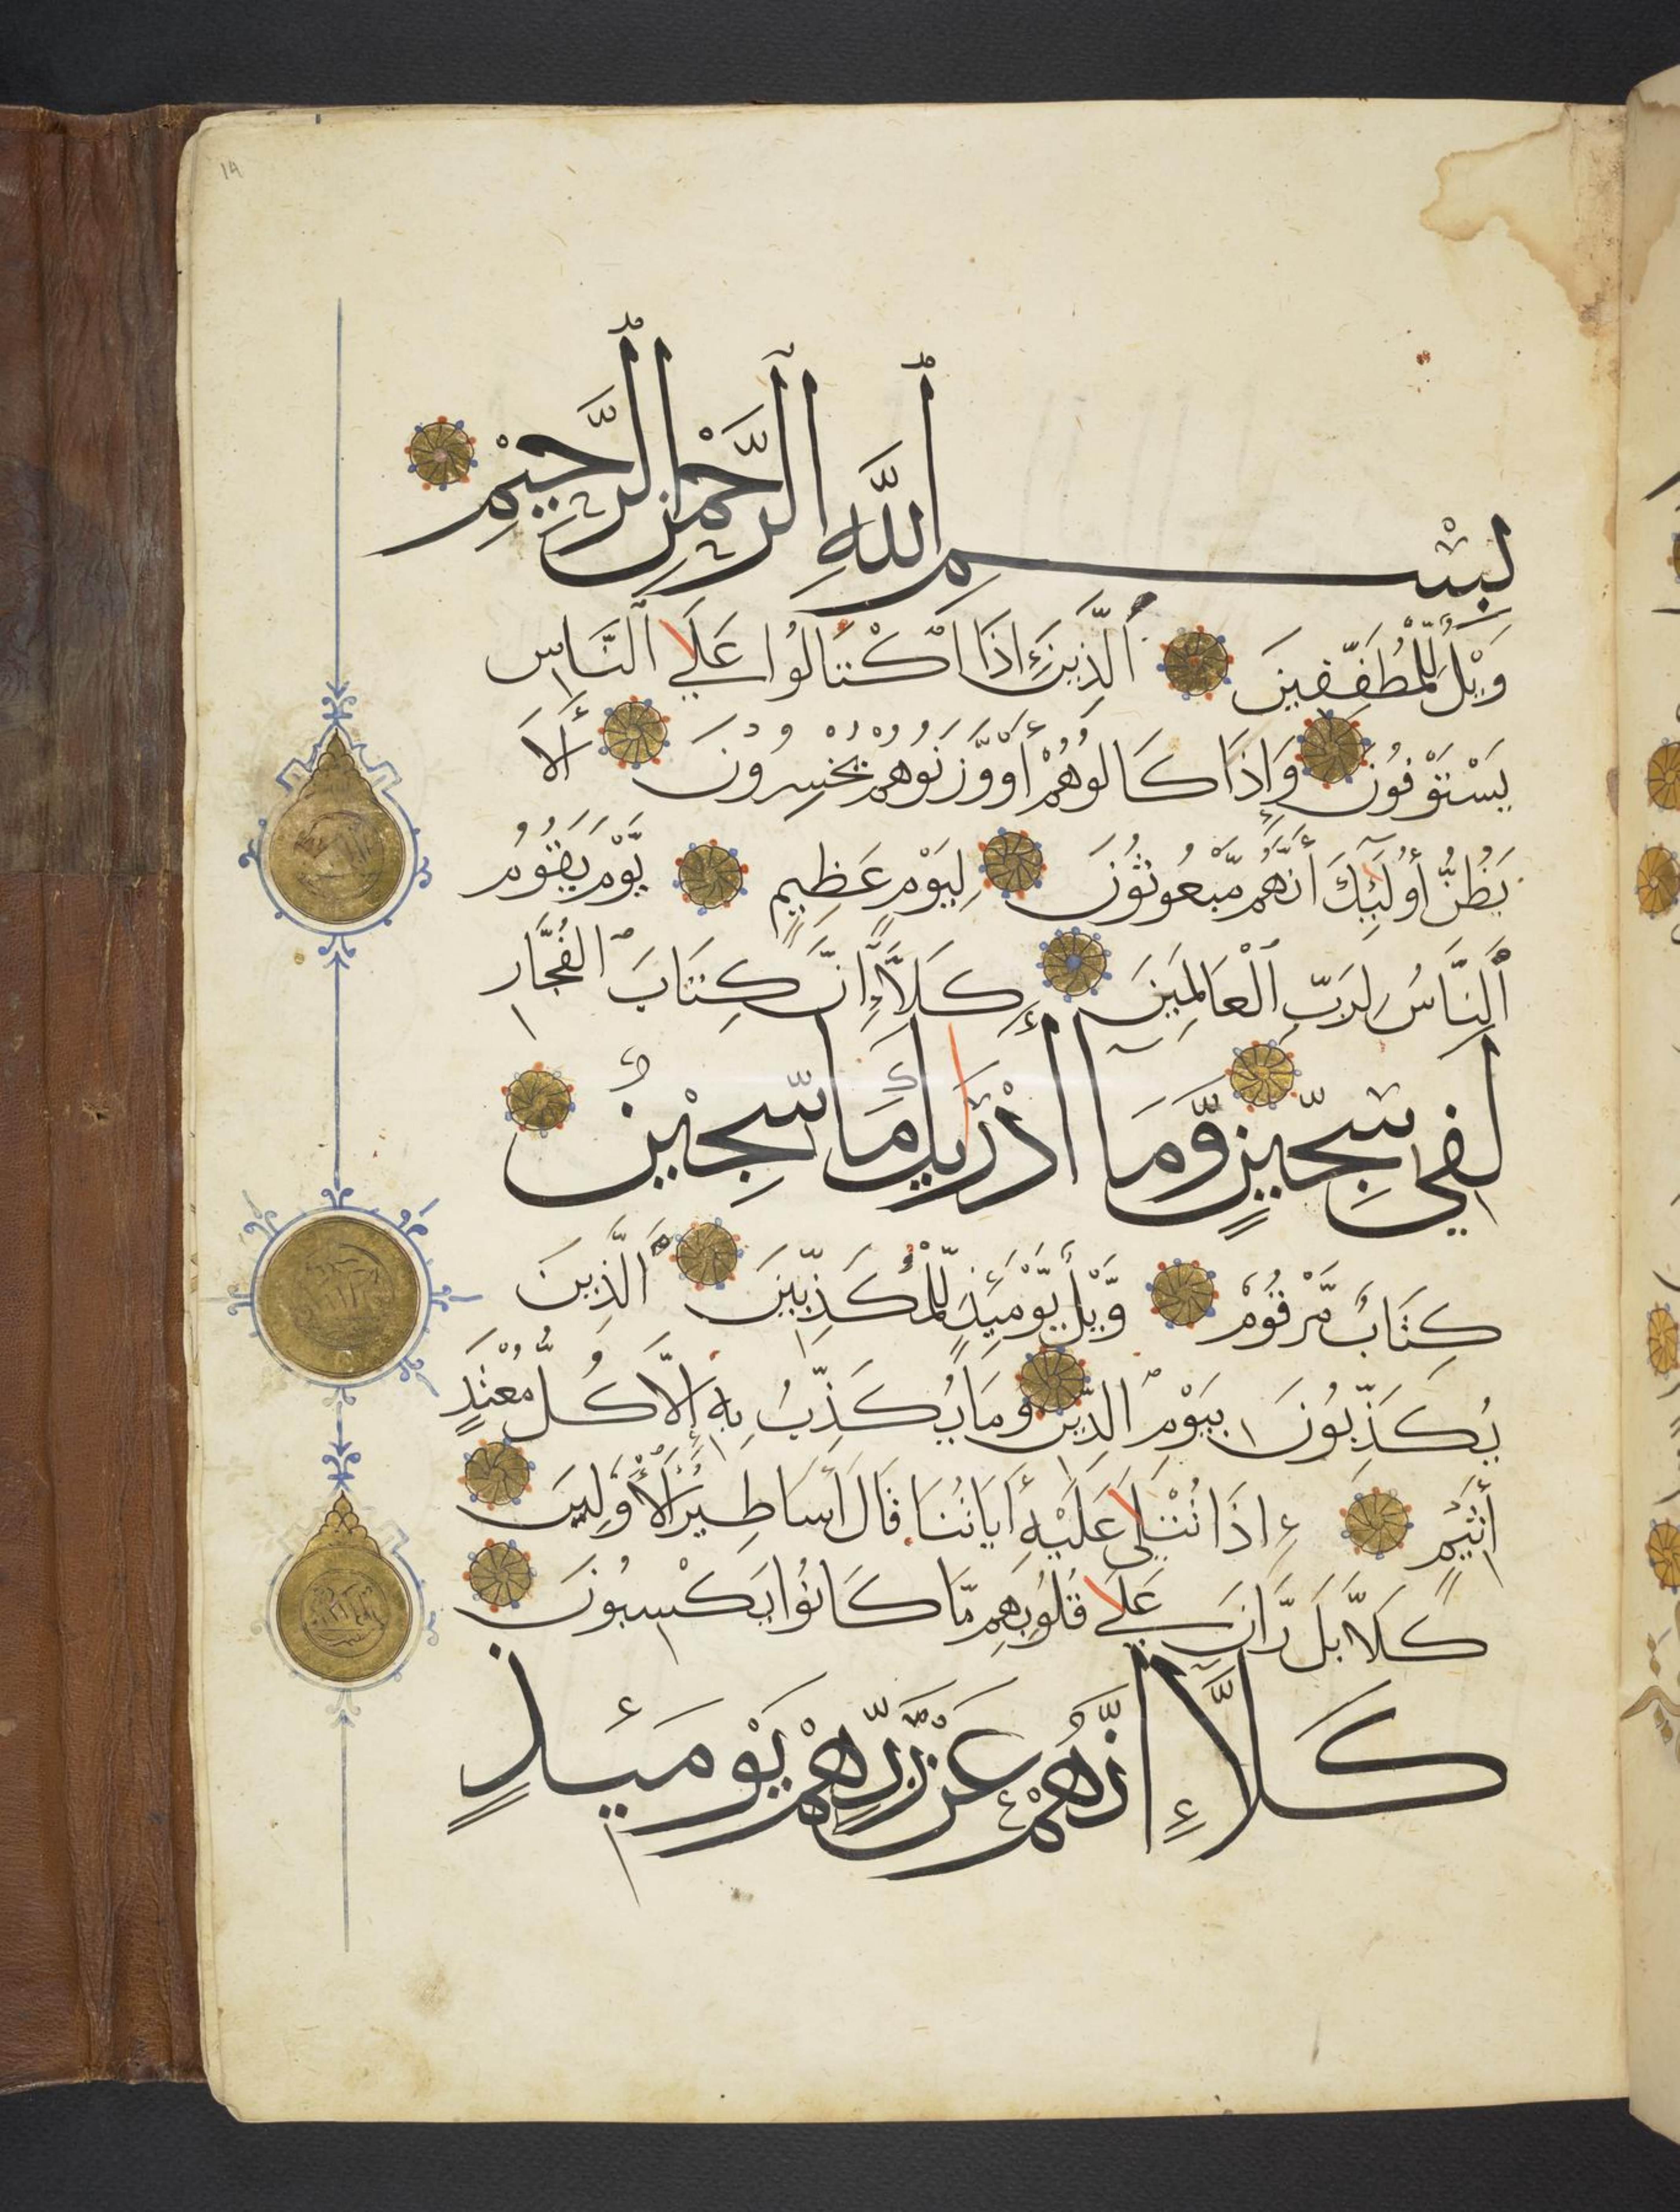 ١٩
بِسْمِ ٱللَّهِ ٱلرَّحْمٰنِ ٱلرَّحِيْمِ
وَيْلٌ لِّلْمُطَفِّفِينَ ٱلَّذِينَ إِذَا ٱكْتَالُوا عَلَي ٱلنَّاسِ
يَسْتَوْفُونَ وَإِذَا كَالُوهُمْ أَو وَّزَنُوهُمْ يُخْسِرُونَ أَلَا
يَظُنُّ أُولَٰٓئِكَ أَنَّهُم مَّبْعُوثُونَ لِيَوْمٍ عَظِيمٍ يَّوْمَ يَقُوْمُ
ٱلنَّاسُ لِرَبِّ ٱلْعَالَمِينَ كَلَّآ إِنَّ كِتَابَ ٱلْفُجَّارِ
لَفِي سِجِّينٍ وَّمَآ أَدْرَيٰكَ مَا سِجِّيْنٌ
كِتَابٌ مَّرْقُوْمٌ وَّيْلٌ يَّوْمَئِذٍ لِّلْمُكَذِّبِينَ ٱلَّذِينَ
يُكَذِّبُونَ بِيَوْمِ ٱلدِّينِ وَمَا يُكَذِّبُ بِهِ إِلَّا كُلُّ مُعْتَدٍ
أَثِيْمٍ إِذَا تُتْلَي عَلَيْهِ أَيَاتُنَا قَالَ أَسَاطِيْرُ ٱلْأَوَّلِينَ
كَلَّا بَل رَّانَ عَلَي قُلُوبِهِم مَّا كَانُوا يَكْسِبُونَ
كَلَّآ إِنَّهُمْ عَن رَّبِّهِمْ يَوْمَئِذٍ